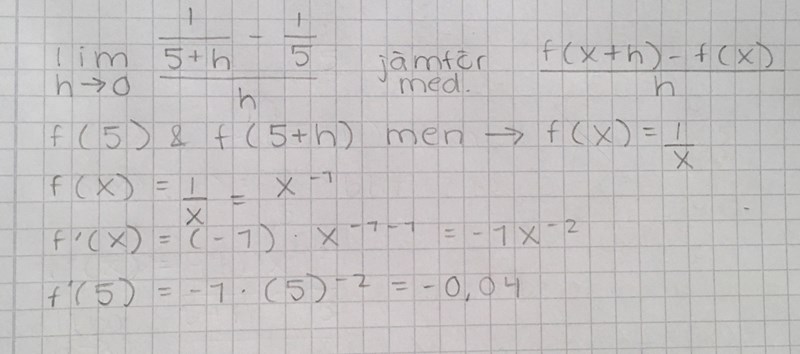 lim h→0 (1/(5+h) - 1/5)/h jämför med. (f(x+h) - f(x))/h
f(5) & f(5+h) men → f(x) = 1/x
f(x) = 1/x = x^-1
f'(x) = (-1) · x^-1-1 = -1x^-2
f'(5) = -1 · (5)^-2 = -0,04